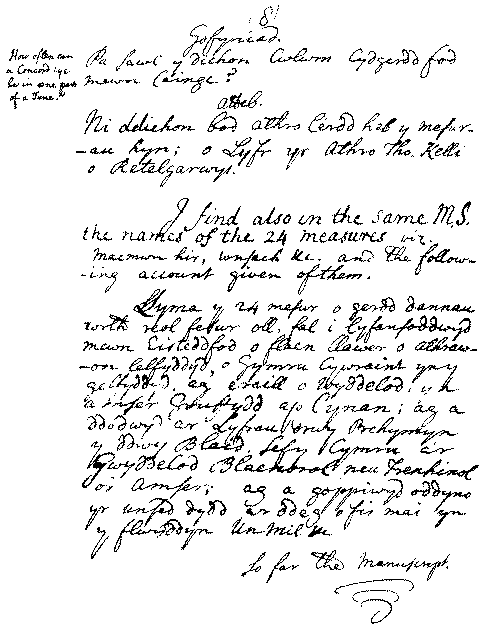 (8)
Gofyniad.
How often can
a Concord &c
be in one part
of a Tune.
Pa sawl y dichon Cwlwm Cydgerdd fod
mewn Cainge?
atteb.
Ni ddichon bod athro Cerdd heb y mesur-
-au hyn; o Lyfr yr Athro Tho. Kelli
o Retelgarwys.
I find also in the same M.S.
the names of the 24 measures viz.
macmwn hir, &c. and the follow-
-ing account given of them.
Llyma y 24 mesur o gerdd dannau
wrth reol fesur oll, fal i Cyfansoddwyd
mewn Eisteddfod o flaen llawer o athraw-
-on Celfyddyd, o Gymru Cywraint yn y
gelfyddyd, ag eraill o Wyddelod, yn
amser Gruffydd ap Cynan; ag a
ddodwyd ar Lyfrau drwy Orchymyn
y ddwy Blaid, sef y Cymru a'r
Gwyddelod neu
o'r amser; ag a goppiwyd oddyno
yr unfed dydd ar ddeg o fis mai yn
y flwyddyn Un Mil &c
So far the Manuscript.